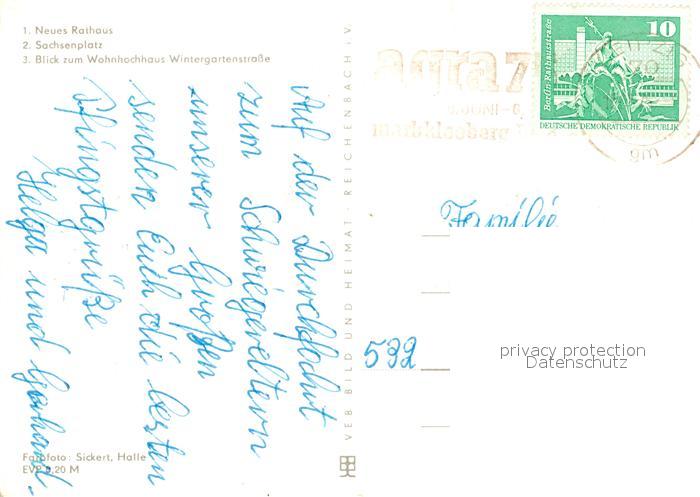 1. Neues Rathaus
2. Sachsenplatz
3. Blick zum Wohnhochhaus Wintergartenstraße
Auf der Durchfahrt
zum Schwiegereltern
unserer Großen
senden Euch die besten
Pfingstgrüße
Helga und Gerhard.
Farbfoto: Sickert, Halle
EVP 0,20 M
VEB BILD UND HEIMAT · REICHENBACH i. V.
agra
markkleeberg
10
Berlin, Rathausstraße
DEUTSCHE DEMOKRATISCHE REPUBLIK
gm
Familie
532
privacy protection
Datenschutz